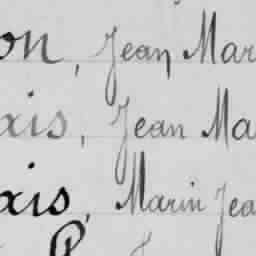 on, Jean Mar
xis, Jean Ma
xis, Marin Jea